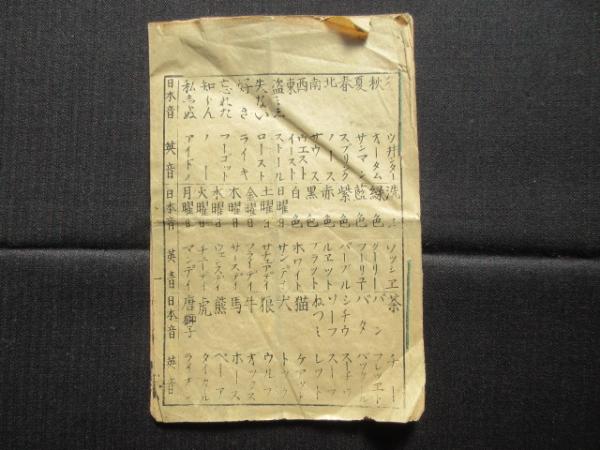 秋 オータム 緑色 パン
夏 サンマン 藍色 バタ
春 スプリング 紫色 パープル シチウ スーチウ
北 ノース 赤色 ルヱット ソーフ スーフ
南 サウス 黒色 ブラット ねづミ レット
西 ウエスト 白色 ホワイト 猫 ケアット
東 イースト
ストール 日曜日 サンデイ 犬 トッグ
失ない ロースト 土曜日 サチュアデイ 狼 ウルフ
好き ライキ 金曜日 フライデイ 牛 オックス
忘れた フーゴット 木曜日 サースデイ 馬 ホース
知らん ノー 水曜日 熊 ベーア
火曜日 チューデイ 虎 タイクル
私 アイドノ 月曜日 マンデイ 唐獅子 ライオン
日本音 英音 日本音 英音 日本音 英音